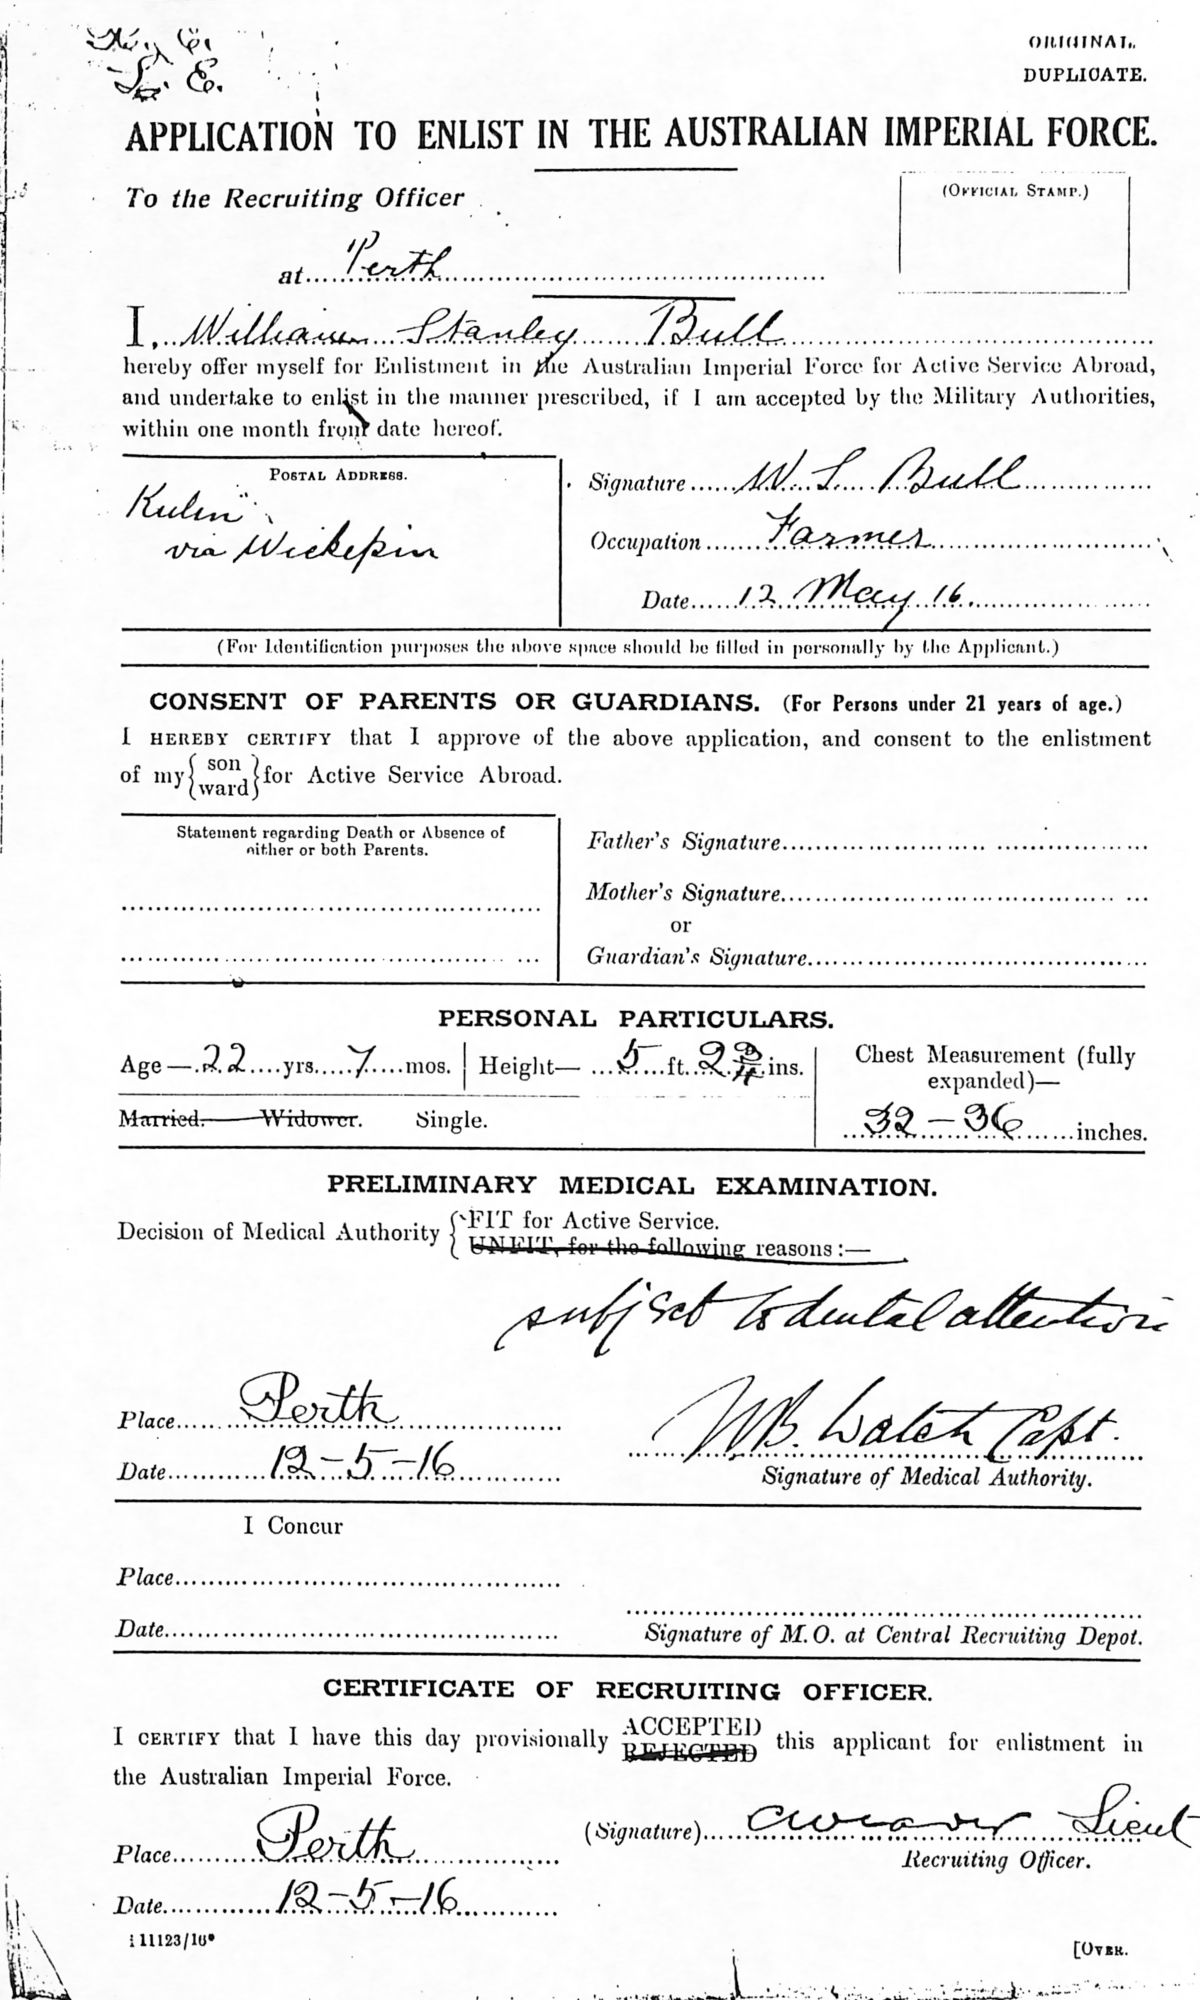 L. E.
ORIGINAL.
DUPLICATE.
APPLICATION TO ENLIST IN THE AUSTRALIAN IMPERIAL FORCE.
To the Recruiting Officer
(OFFICIAL STAMP.)
at Perth
I, William Stanley Bull
hereby offer myself for Enlistment in the Australian Imperial Force for Active Service Abroad,
and undertake to enlist in the manner prescribed, if I am accepted by the Military Authorities,
within one month from date hereof.
POSTAL ADDRESS.
Kulin
via Wickepin
Signature W. S. Bull
Occupation Farmer
Date 12 May 16.
(For Identification purposes the above space should be filled in personally by the Applicant.)
CONSENT OF PARENTS OR GUARDIANS. (For Persons under 21 years of age.)
I HEREBY CERTIFY that I approve of the above application, and consent to the enlistment
of my { son ward } for Active Service Abroad.
Statement regarding Death or Absence of
either or both Parents.
Father's Signature
Mother's Signature
or
Guardian's Signature
PERSONAL PARTICULARS.
Age — 22 yrs. 7 mos. Height— 5 ft. 2 3/4 ins.
Chest Measurement (fully
expanded)—
Married. Widower. Single.
32 – 36 inches.
PRELIMINARY MEDICAL EXAMINATION.
Decision of Medical Authority { FIT for Active Service.
UNFIT, for the following reasons :—
subject to dental attention
Place Perth
Date 12-5-16
Capt.
Signature of Medical Authority.
I Concur
Place
Date
Signature of M.O. at Central Recruiting Depot.
CERTIFICATE OF RECRUITING OFFICER.
I CERTIFY that I have this day provisionally ACCEPTED REJECTED this applicant for enlistment in
the Australian Imperial Force.
(Signature) Lieut
Recruiting Officer.
Place Perth
Date 12-5-16
11123/16
[OVER.